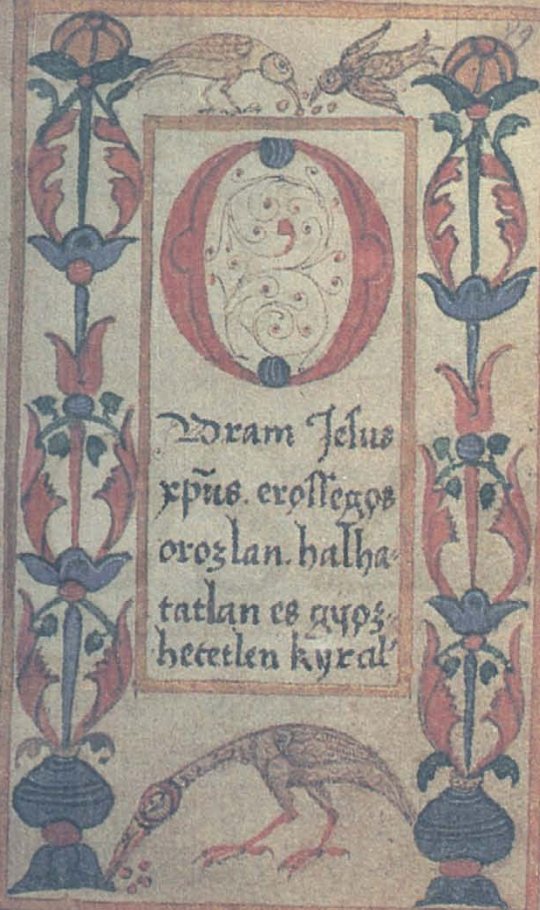 O
Wram Jeſus
xp̄us. erøſſegøs
orozlan. halha-
tatlan es gyøz-
hetetlen kyral'